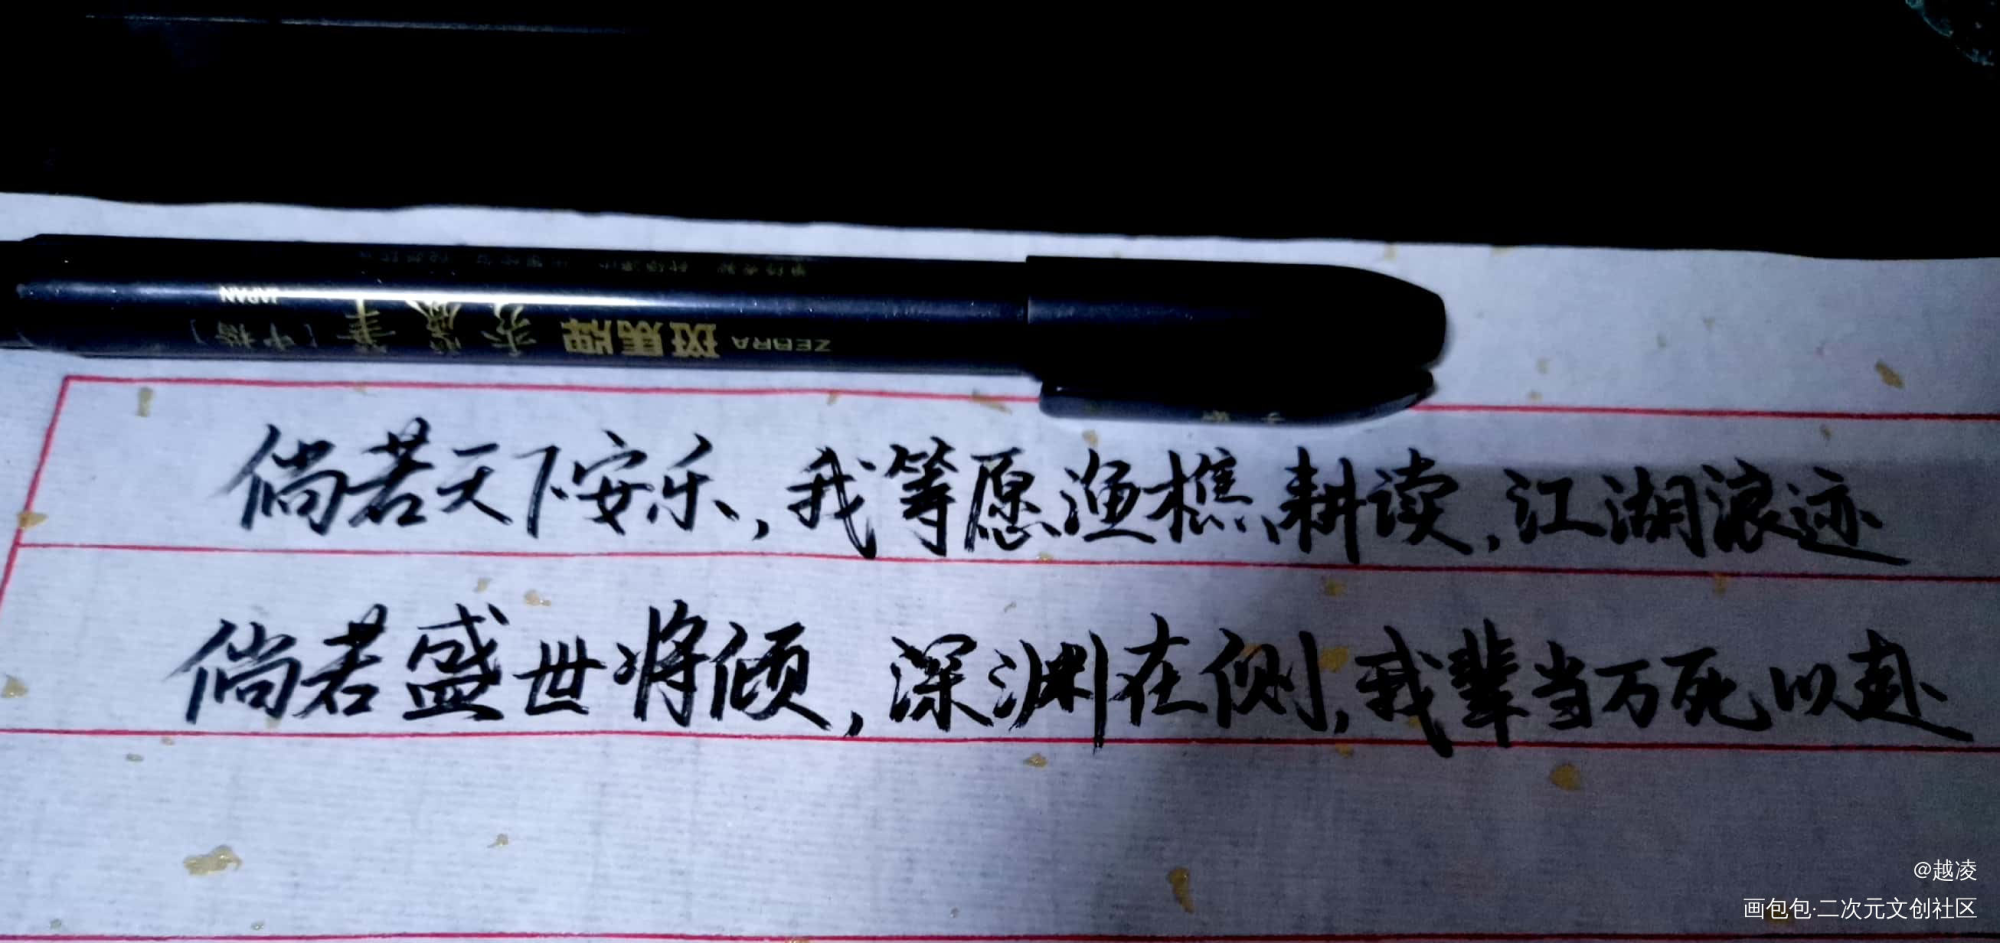 JAPAN
ZEBRA 斑馬牌
倘若天下安乐,我等愿渔樵耕读,江湖浪迹
倘若盛世将倾,深渊在侧,我辈当万死以赴
@越凌
画包包·二次元文创社区